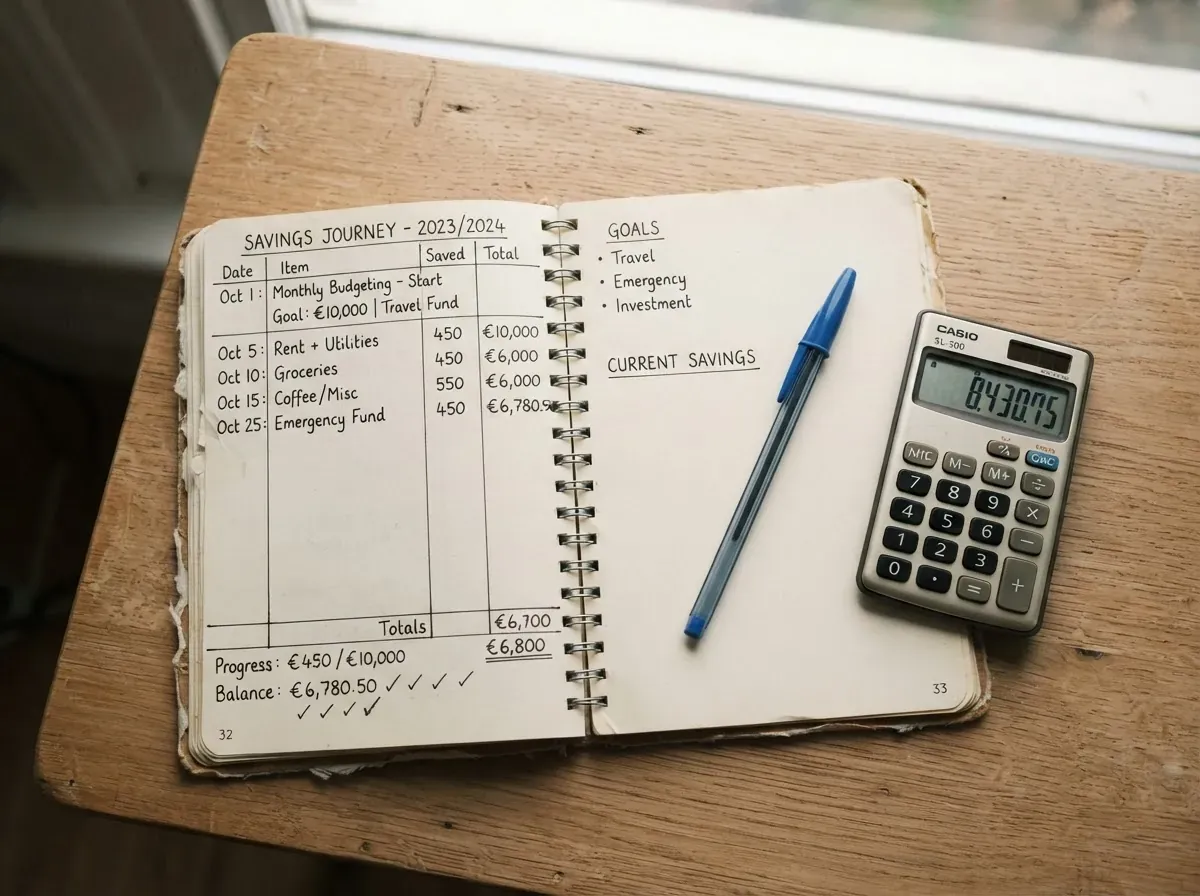 SAVINGS JOURNEY - 2023/2024
Date Item Saved Total
Oct 1: Monthly Budgeting - Start
Goal: €10,000 | Travel Fund
Oct 5: Rent + Utilities 450 €10,000
Oct 10: Groceries 450 €6,000
Oct 15: Coffee/Misc 550 €6,000
Oct 25: Emergency Fund 450 €6,780.9
Totals €6,700
€6,800
Progress: €450/€10,000
Balance: €6,780.50 ✓ ✓ ✓ ✓
✓ ✓ ✓ ✓
32
GOALS
• Travel
• Emergency
• Investment
CURRENT SAVINGS
33
CASIO
8,430.75
M- M+ ÷
7 8 9 ×
4 5 6 −
1 2 3 +
0 • =